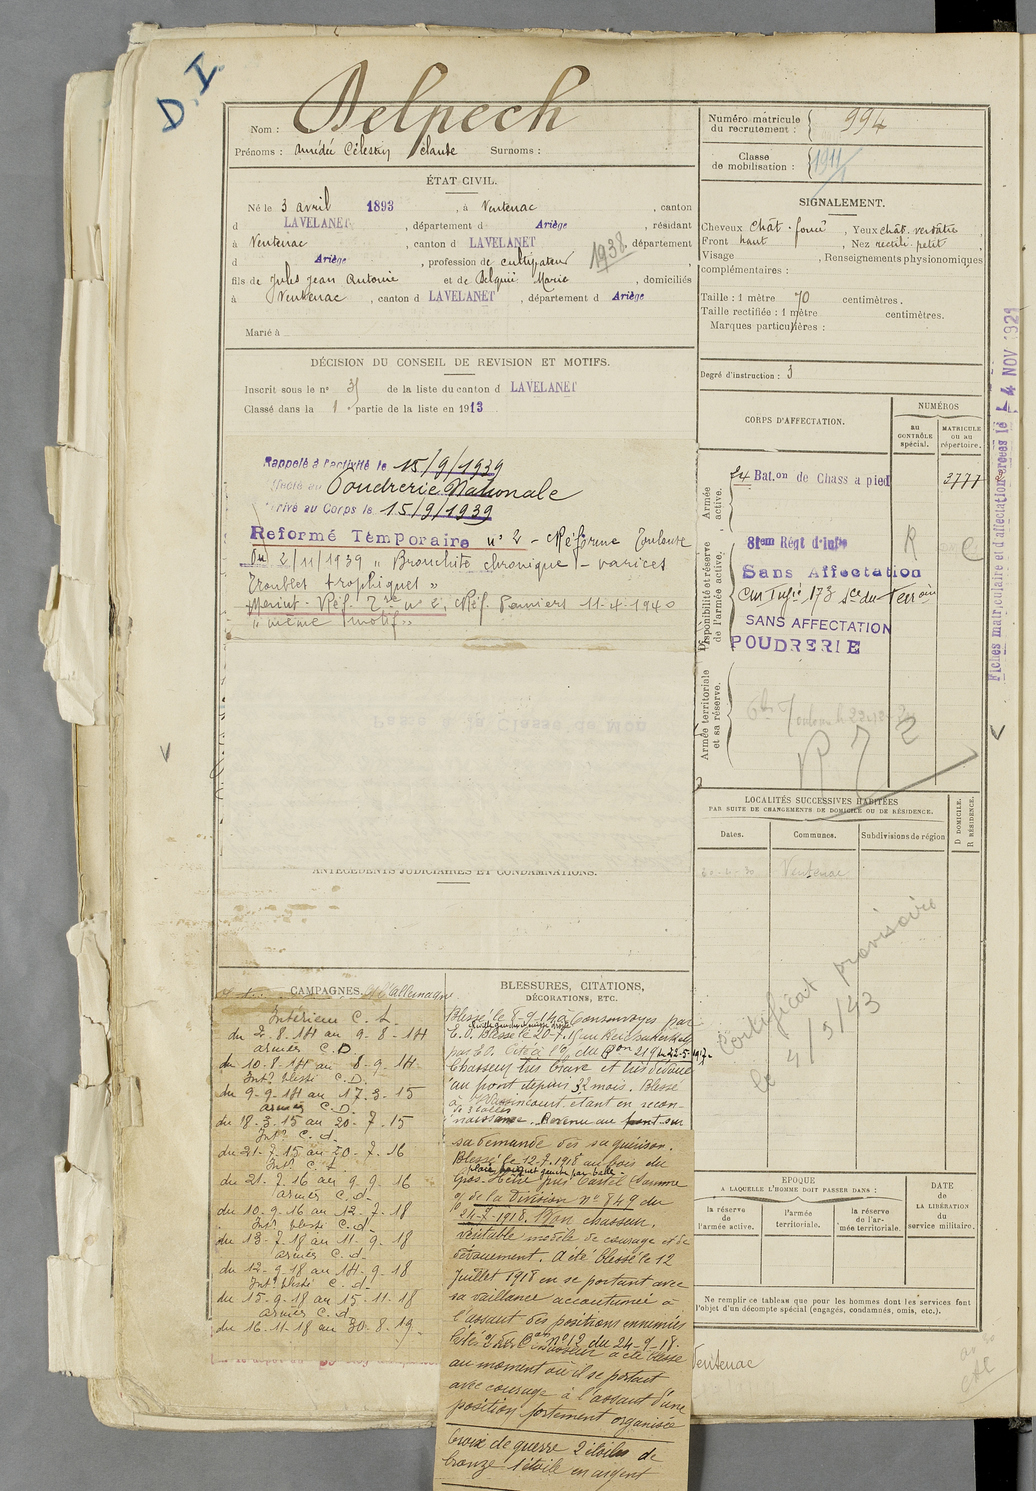 D.I.
Nom : Delpech
Prénoms : Amédée Célestin Claude Surnoms :
ÉTAT CIVIL.
Né le 3 avril 1893, à Ventenac, canton
d LAVELANET, département d Ariège, résidant
à Ventenac, canton d LAVELANET 1938 département
d Ariège, profession de cultivateur
fils de Jules Jean Antonin et de Marie, domiciliés
à Ventenac, canton d LAVELANET, département d Ariège
Marié à
DÉCISION DU CONSEIL DE REVISION ET MOTIFS.
Inscrit sous le n° 31 de la liste du canton d LAVELANET
Classé dans la 1 partie de la liste en 1913
Rappelé à l'activité le 15/9/1939
Poudrerie Nationale
Arrivé au Corps le 15/9/1939
Reformé Temporaire n° 2 - Réforme Toulouse
Du 2/11/1939 " Bronchite chronique - varices
Troubles trophiques "
Maint. Réf. n° 2, Réf. Pamiers 11-4-1940
" même motif "
ANTÉCÉDENTS JUDICIAIRES ET CONDAMNATIONS.
CAMPAGNES. Allemagne
Intérieur C. S.
du 2-8-14 au 9-8-14
armées C.D.
du 10-8-14 au 8-9-14
Intr blessé C.D.
du 9-9-14 au 17-3-15
armées C.D.
du 18-3-15 au 20-7-15
Intr C. d.
du 21-7-15 au 20-7-16
Intr C. S.
du 21-7-16 au 9-9-16
armées C. d.
du 10-9-16 au 12-7-18
Intr blessé C. d.
du 13-7-18 au 11-9-18
armées C. d.
du 12-9-18 au 14-9-18
Intr blessé C. d.
du 15-9-18 au 15-11-18
armées C. d.
du 16-11-18 au 30-8-19
BLESSURES, CITATIONS,
DÉCORATIONS, ETC.
Blessé le 8-9-14 à Consenvoyes par
E.O. Blessé le 20-7-15 au Reichackerkopf
par E.O. Cité à l'o/ du Bon 219 du 22-5-1917.
Chasseur très brave et très dévoué
au front depuis 32 mois. Blessé
à Vassincourt étant en recon-
naissance. Revenu au front sur
sa demande dès sa guérison.
Blessé le 12-7-1918 au bois du
plaie poignet gauche par balle
Gros Hêtre près Castel Somme
o/ de la Division n° 849 du
24-7-1918. Bon chasseur,
véritable modèle de courage et de
dévouement. A été blessé le 12
Juillet 1918 en se portant avec
sa vaillance accoutumée à
l'assaut des positions ennemies
Cité o/ du Bon n° 12 du 24-9-18.
Chasseur a été blessé
au moment où il se portait
avec courage à l'assaut d'une
position fortement organisée
Croix de guerre 2 étoiles de
bronze 1 étoile en argent
Numéro matricule
du recrutement : 994
Classe
de mobilisation : 1911/1
SIGNALEMENT.
Cheveux chât. foncé, Yeux chât. verdâtre
Front haut, Nez rectil. petit
Visage, Renseignements physionomiques
complémentaires :
Taille : 1 mètre 70 centimètres.
Taille rectifiée : 1 mètre centimètres.
Marques particulières :
Degré d'instruction : 3
CORPS D'AFFECTATION.
NUMÉROS
AU CONTRÔLE spécial.
MATRICULE ou au répertoire.
Armée active.
24 Bat.on de Chass a pied 3777
Disponibilité et réserve de l'armée active.
81em Régt d'Infie R
Sans Affectation
Cen Infie 173 Sce du Terroir
SANS AFFECTATION
POUDRERIE
Armée territoriale et sa réserve.
R
LOCALITÉS SUCCESSIVES HABITÉES
PAR SUITE DE CHANGEMENTS DE DOMICILE OU DE RÉSIDENCE.
Dates. Communes. Subdivisions de région
D DOMICILE.
R RÉSIDENCE.
Ventenac
Certificat provisoire
le 4/3/43
EPOQUE
A LAQUELLE L'HOMME DOIT PASSER DANS :
DATE
DE
LA LIBÉRATION
du
service militaire.
la réserve
de
l'armée active.
l'armée
territoriale.
la réserve
de l'ar-
mée territoriale.
Ne remplir ce tableau que pour les hommes dont les services font
l'objet d'un décompte spécial (engagés, condamnés, omis, etc.).
Ventenac
Fiches matriculaire et d'affectation créées le 4 NOV 1921